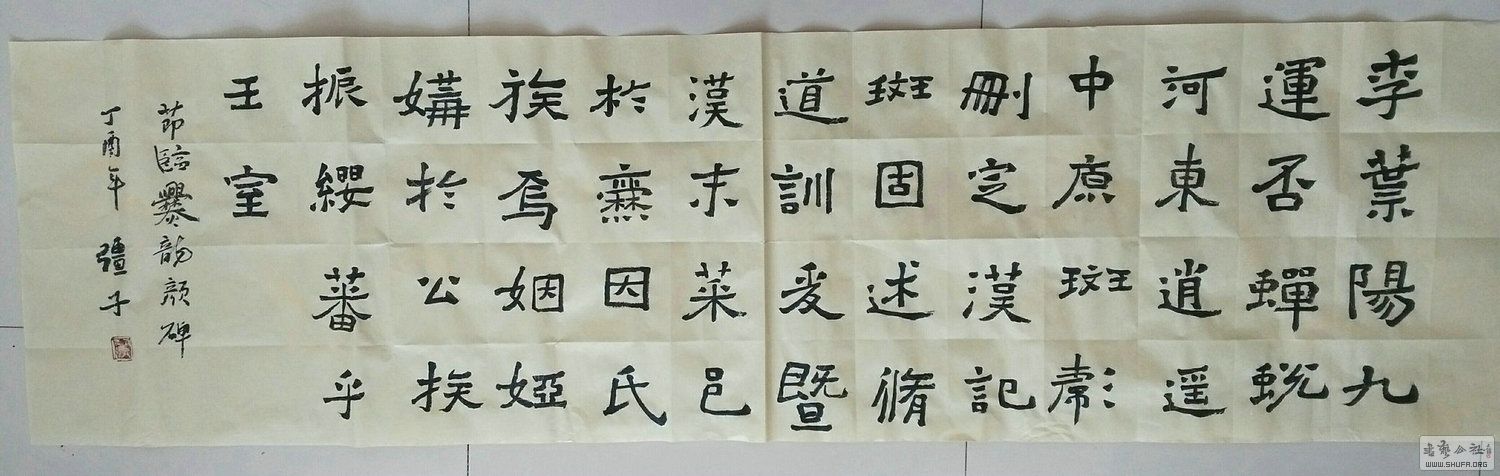 李葉陽九
運否蟬蛻
河東逍遥
中原斑彪
刪定漢記
斑固述脩
道訓爰暨
漢末菜邑
於爨因氏
族焉姻婭
媾於公族
振纓蕃乎
王室
節臨爨龍顔碑
丁酉年 彊子
书艺公社
WWW.SHUFA.ORG